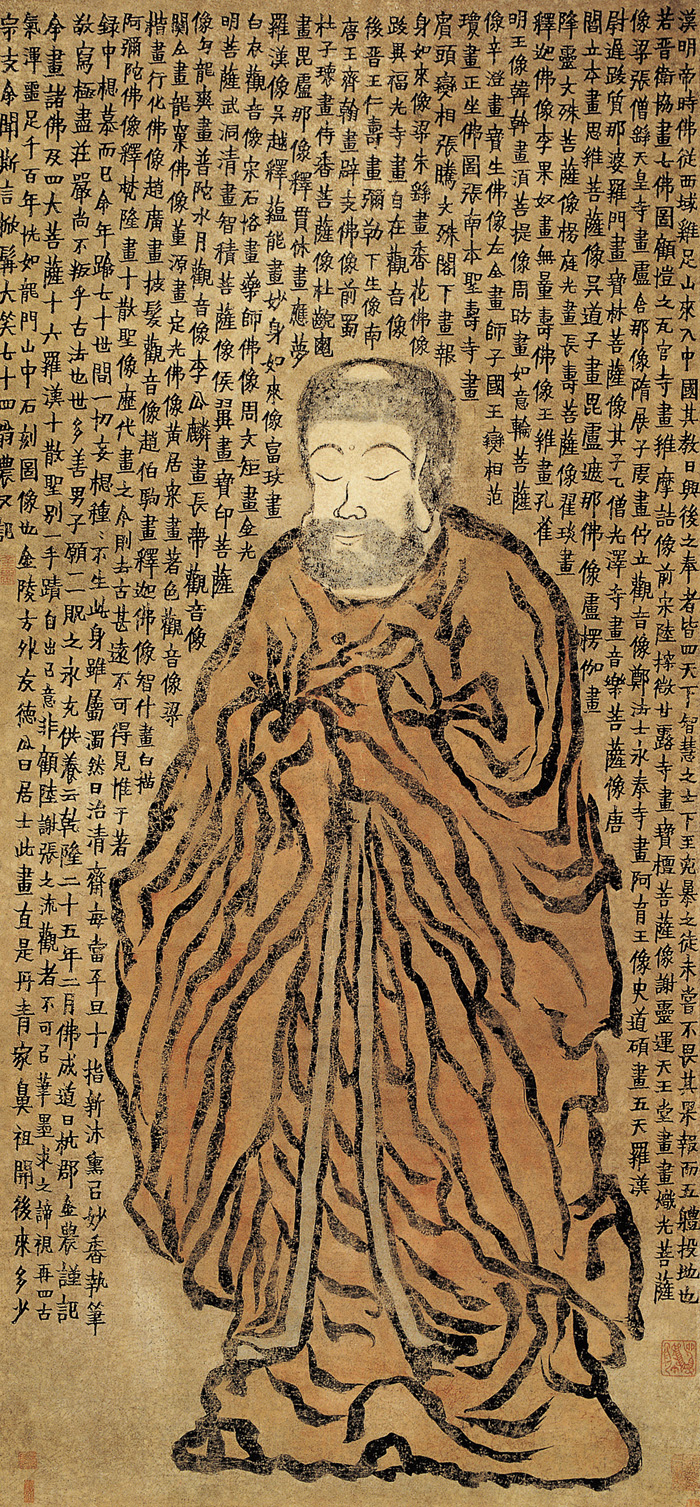 漢明帝時佛從西域雞足山來入中國其教日興後之奉者皆四天下智慧之士下至兇暴之徒未嘗不畏其果報而五體投地也
若晉衛協畫七佛圖顧愷之瓦官寺畫維摩詰像前宋陸探微甘露寺畫寶檀菩薩像謝靈運天王堂畫畫熾光菩薩
像梁張僧繇天皇寺畫盧舍那像隋展子虔畫佇立觀音像鄭法士永泰寺畫阿育王像史道碩畫五天羅漢
尉遲跋質那婆羅門畫寶林菩薩像其子乙僧光澤寺畫音樂菩薩像唐
閻立本畫思維菩薩像吳道子畫毘盧遮那佛像盧楞伽畫
降靈文殊菩薩像楞庭光畫長壽菩薩像翟琰畫
釋迦佛像李果奴畫無量壽佛像王維畫孔雀
明王像韓幹畫須菩提像周昉畫如意輪菩薩
像辛澄畫寶生佛像左全畫師子國王變相范
瓊畫正坐佛圖張南本聖壽寺畫
賓頭變相張騰文殊閣下畫報
身如來像梁朱繇畫香花佛像
跋異福光寺畫自在觀音像
後晉王仁壽畫彌勒下生像南
唐王齊翰畫辟支佛像前蜀
杜子瓌畫侍香菩薩像杜齯龜
畫毘盧那佛像釋貫休畫應夢
羅漢像吳越釋蘊能畫妙身如來像富玟畫
白衣觀音像宋石恪畫藥師佛像周文矩畫金光
明菩薩武洞清畫智積菩薩像侯翼畫寶印菩薩
像勾龍爽畫普陀水月觀音像李公麟畫長帶觀音像
關仝畫龍窠佛像董源畫定光佛像黃居寀畫著色觀音像梁
楷畫行化佛像趙廣畫披髮觀音像趙伯駒畫釋迦佛像智什畫白描
阿彌陀佛像釋梵隆畫十散聖像歷代畫之今則去古甚遠不可得見惟于著
錄中想慕而已今年踰七十世間一切妄想種種不生此身雖屬濁然日治清齋每當平旦十指新沐熏以妙香執筆
敬寫極盡莊嚴尚不叛乎古法也世多善男子願一一貺之永充供養云乾隆二十五年二月佛成道日杭郡金農謹記
余畫諸佛及四大菩薩十六羅漢十散聖別一手蹟自出己意非顧陸謝張之流觀者不可以筆墨求之諦視再四古
氣渾噩足千百年恍如龍門山中石刻圖像也金陵方外友德公曰居士此畫直是丹青家鼻祖開後來多少
宗支余聞斯言掀髯大笑七十四翁農又記